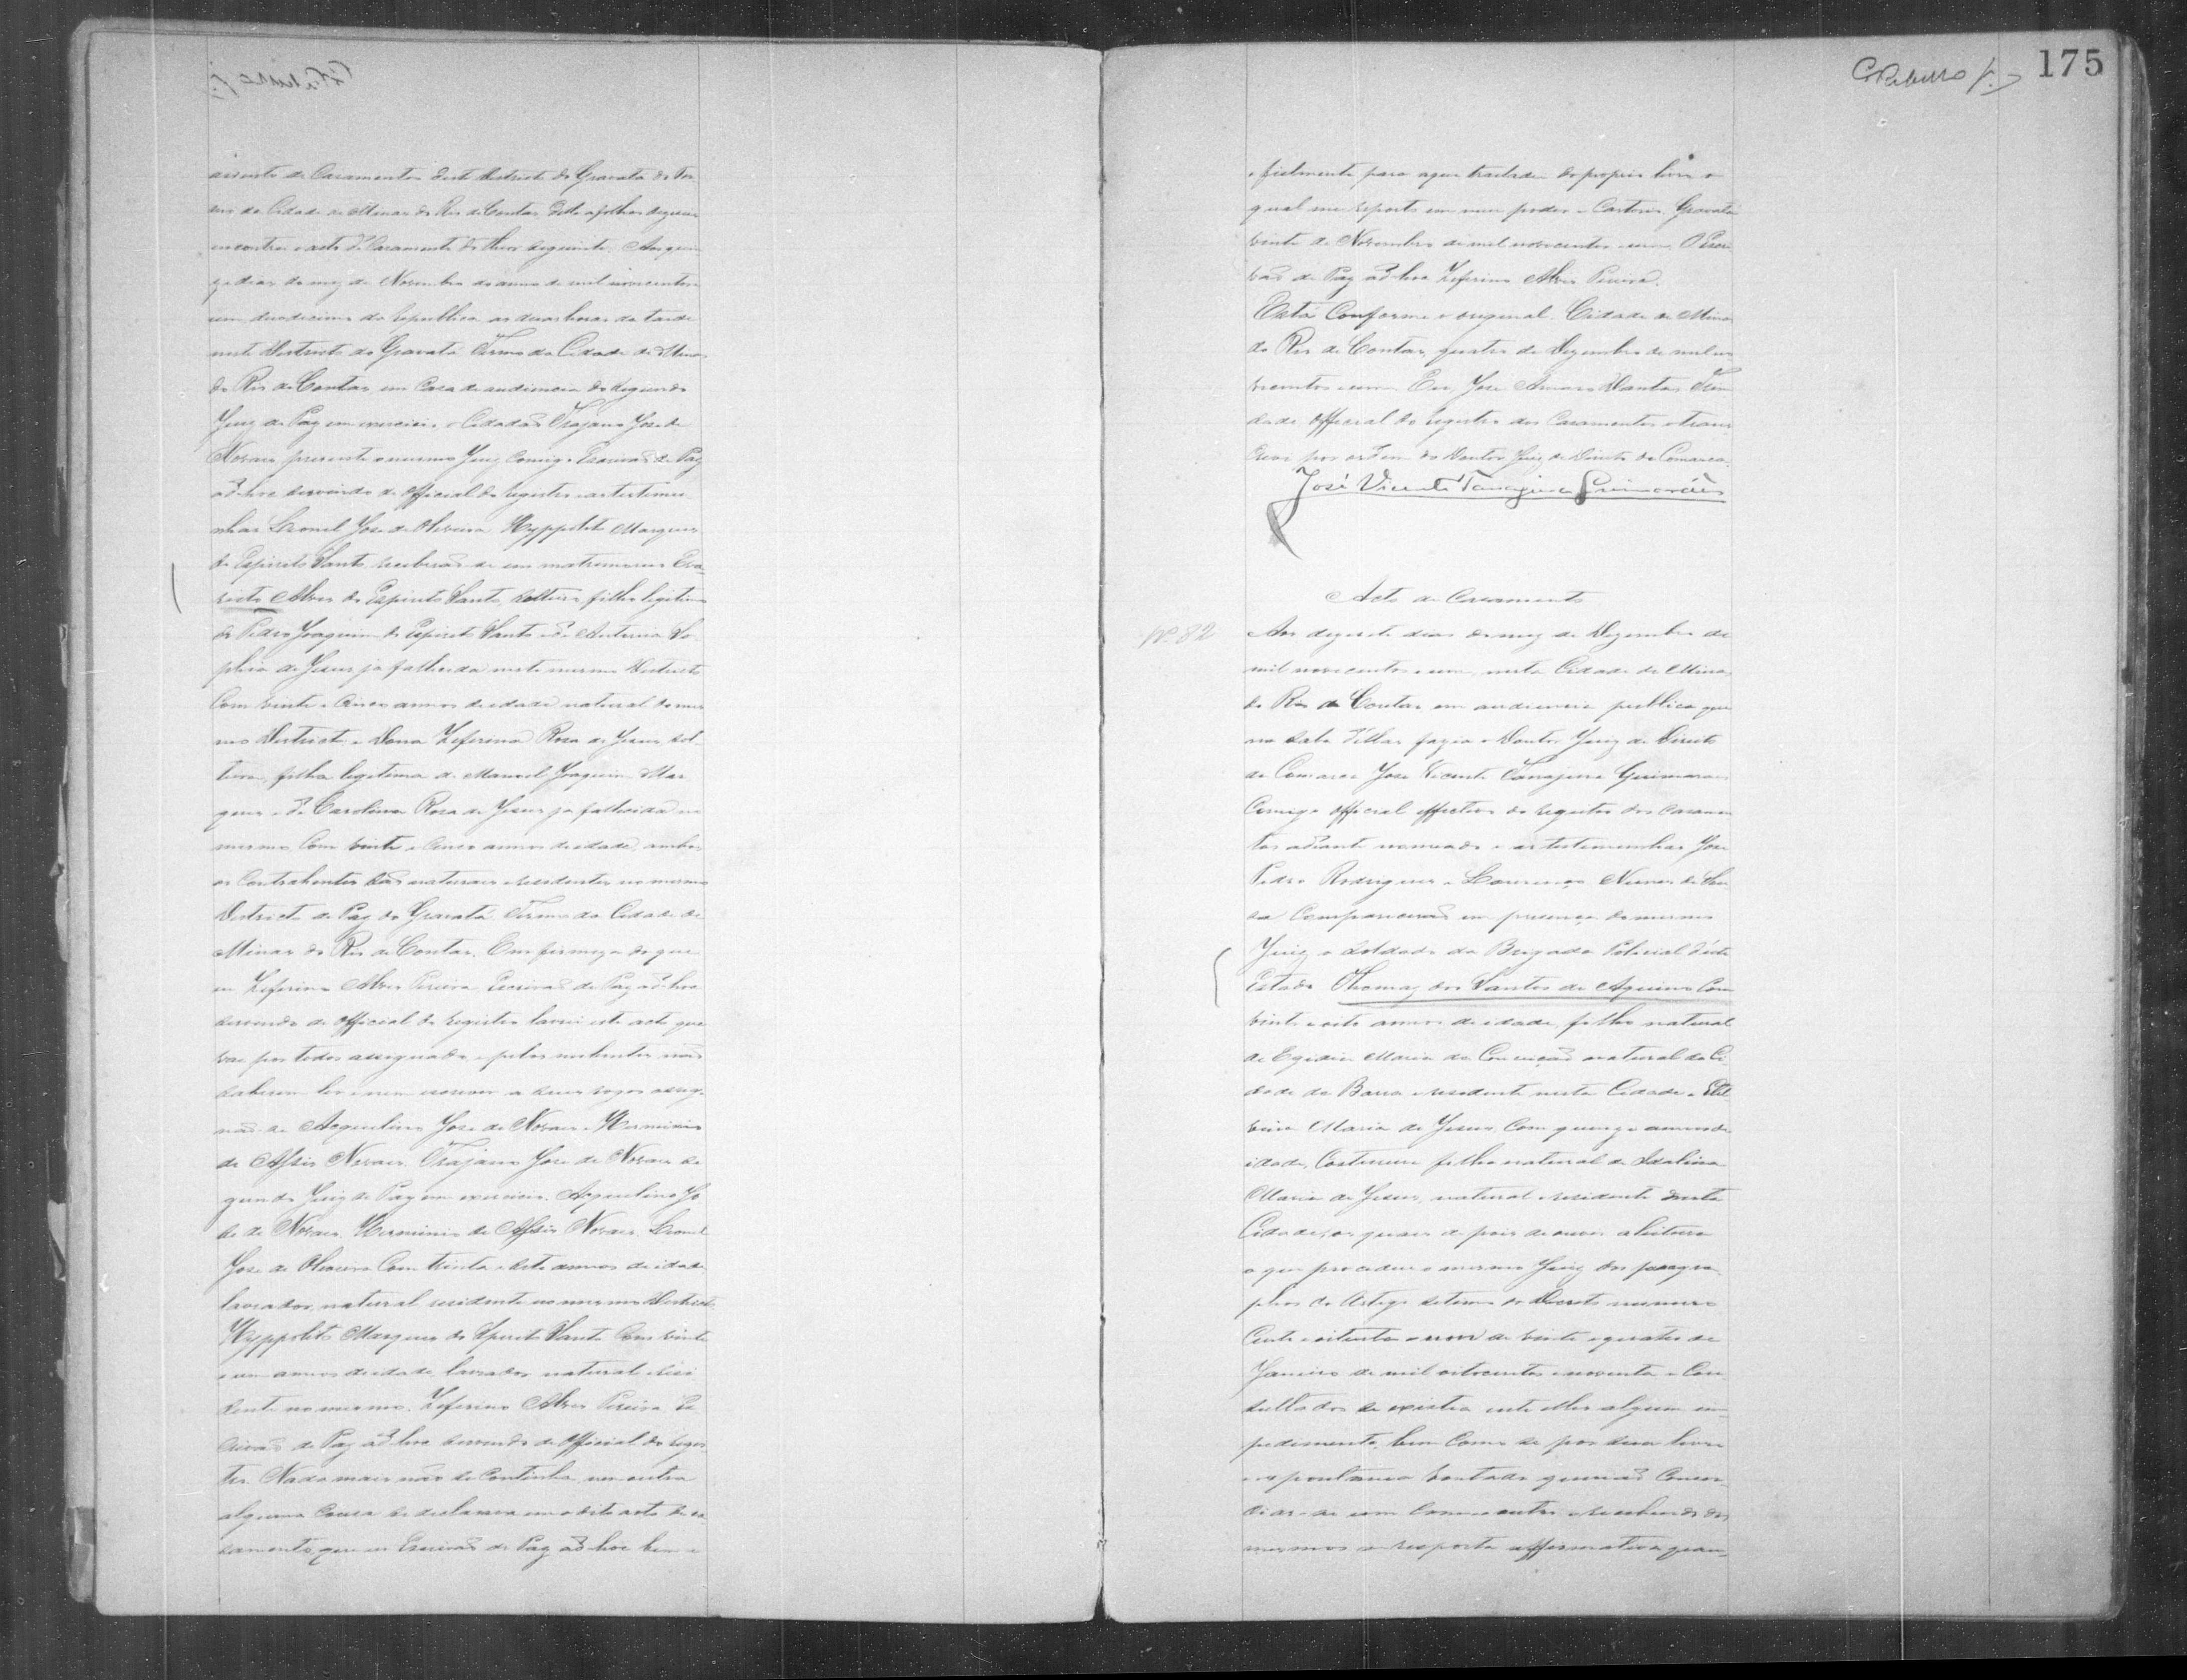 assento de Casamentos deste Districto do Gravatá do Ter
mo da Cidade de Minas do Rio de Contas delle a folhas
encontrei o acto de Casamento do theor seguinte. Aos quin
ze dias do mez de Novembro do anno de mil novecentos e
um, duodecimo da Republica as duas horas da tarde
neste Districto do Gravatá Termo da Cidade de Minas
do Rio de Contas, em Casa de audiencia do segundo
Juiz de Paz em exercicio o Cidadão Trajano Jose de
Novaes, presente o mesmo Juiz Comigo Escrivão de Paz
ad-hoc servindo de Official do registro e as testemu
nhas Leonel Jose de Oliveira Hyppolito Marques
do Espirito Santo, receberão-se em matrimonio Eva
risto Alves do Espirito Santo, solteiro, filho legitimo
de Pedro Joaquim do Espirito Santo e de Anteria So
phia de Jesus, ja fallecida neste mesmo Districto
Com vinte e Cinco annos de idade natural do mes
mo Districto, e Dona Zeferina Rosa de Jesus, sol
teira, filha legitima de Manoel Joaquim Mar
ques e de Carolina Rosa de Jesus ja fallecida no
mesmo Com vinte e Cinco annos de idade, ambos
os Contrahentes são naturaes e residentes no mesmo
Districto de Paz do Gravatá Termo da Cidade de
Minas do Rio de Contas. Em firmeza do que
eu Zeferino Alves Pereira, Escrivão de Paz ad-hoc
servindo de Official do registro lavrei este acto que
vae por todos assignado e pelos nubentes não
saberem ler e nem escrever a seus rogos assig
não-se Aequelino Jose de Novaes e Herminio
de Assis Novaes. Trajano Jose de Novaes se
gundo Juiz de Paz em exercicio. Aequelino Jo
se de Novaes, Herminio de Assis Novaes Leonel
Jose de Oliveira Com trinta e sete annos de idade
lavrador, natural residente no mesmo Districto.
Hyppolito Marques do Spirito Santo Com vinte
e um annos de idade lavrador natural e resi
dente no mesmo. Zeferino Alves Pereira Es
crivão de Paz ad-hoc servindo de Official do regis
tro. Nada mais não se Continha, nem outra
alguma Cousa se declarava em o dito acto de ca
samento, que eu Escrivão de Paz ad-hoc bem e
C Rabello Jr. 175
fielmente para aqui trasladei do proprio livro o
qual me reporto em meu poder e Cartorio. Gravatá
vinte de Novembro de mil novecentos e um. O Escri
vão de Paz ad-hoc Zeferino Alves Pereira.
Está Conforme o original. Cidade de Minas
do Rio de Contas, quatro de Dezembro de mil no
vecentos e um. Eu, Jose Amaro Dantas Trin
dade, Official do registro dos Casamentos o trans
crevi por ordem do Doutor Juiz de Direito da Comarca.
José Vicente Tanajura Guimarães
Acto de Casamento
Nº 82 Aos dezesete dias do mez de Dezembro de
mil novecentos e um, nesta Cidade de Minas
do Rio de Contas, em audiencia publica que
na sala dellas fazia o Doutor Juiz de Direito
da Comarca Jose Vicente Tanajura Guimarães
Comigo Official effectivo do registro dos Casamen
tos adiante nomeado e as testemunhas Jose
Pedro Rodrigues e Lourenço Nunes de Sou
za Comparecerão em presença do mesmo
Juiz o soldado da Brigada Policial d'este
Estado Thomaz dos Santos de Aquino Com
vinte e oito annos de idade, filho natural
de Egidia Maria da Conceição natural da Ci
dade da Barra e residente nesta Cidade e Etel
vina Maria de Jesus, Com quinze annos de
idade, Costureira filha natural de Idalina
Maria de Jesus, natural e residente nesta
Cidade, os quaes depois de ouvir a leitura
a que procedeu o mesmo Juiz dos paragra
phos do Artigo setimo do Decreto numero
Cento e oitenta e um de vinte e quatro de
Janeiro de mil oitocentos e noventa e Con
sultados se existia entre elles algum im
pedimento, bem Como se por sua livre
e espontanea vontade querião Consor
ciar-se um Com o outro e recebendo dos
mesmos a resposta affirmativa quan